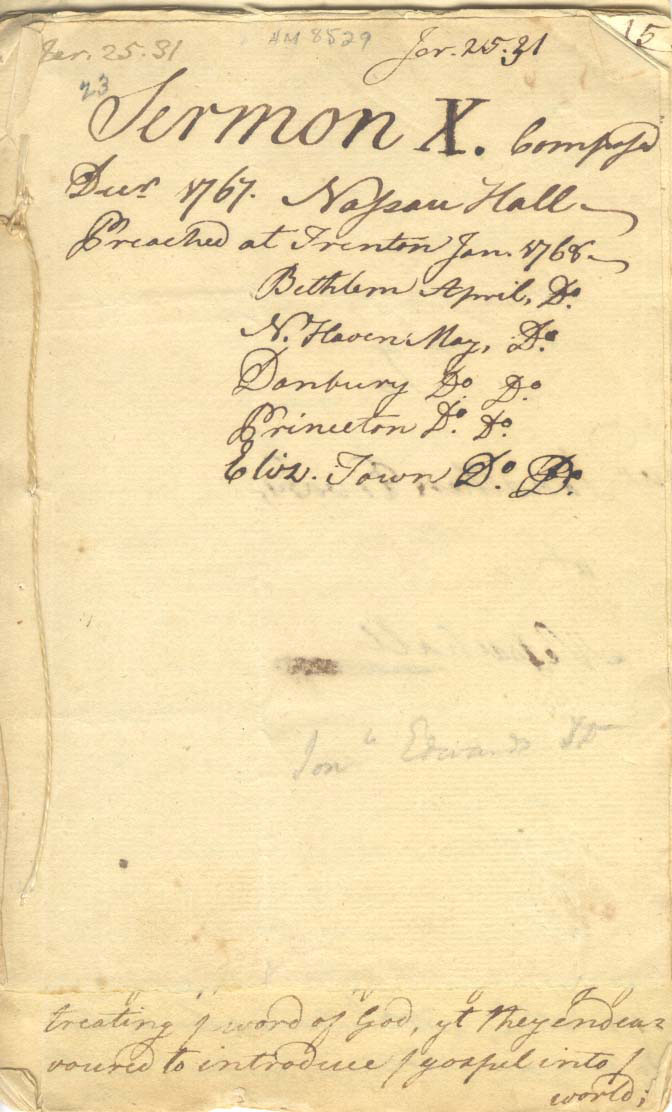 Jer. 25. 31
HM 8529
Jer. 25. 31
15
23
Sermon X. Compos'd
Decr. 1767. Nassau Hall
Preached at Trenton Jan. 1768.
Bethlem April, Do.
N. Haven May, Do.
Danbury Do. Do.
Princeton Do. Do.
Eliz. Town Do. Do.
Jonn. Edwards Jr
treating ye word of God, yt they endea=
voured to introduce ye gospel into ye
world;